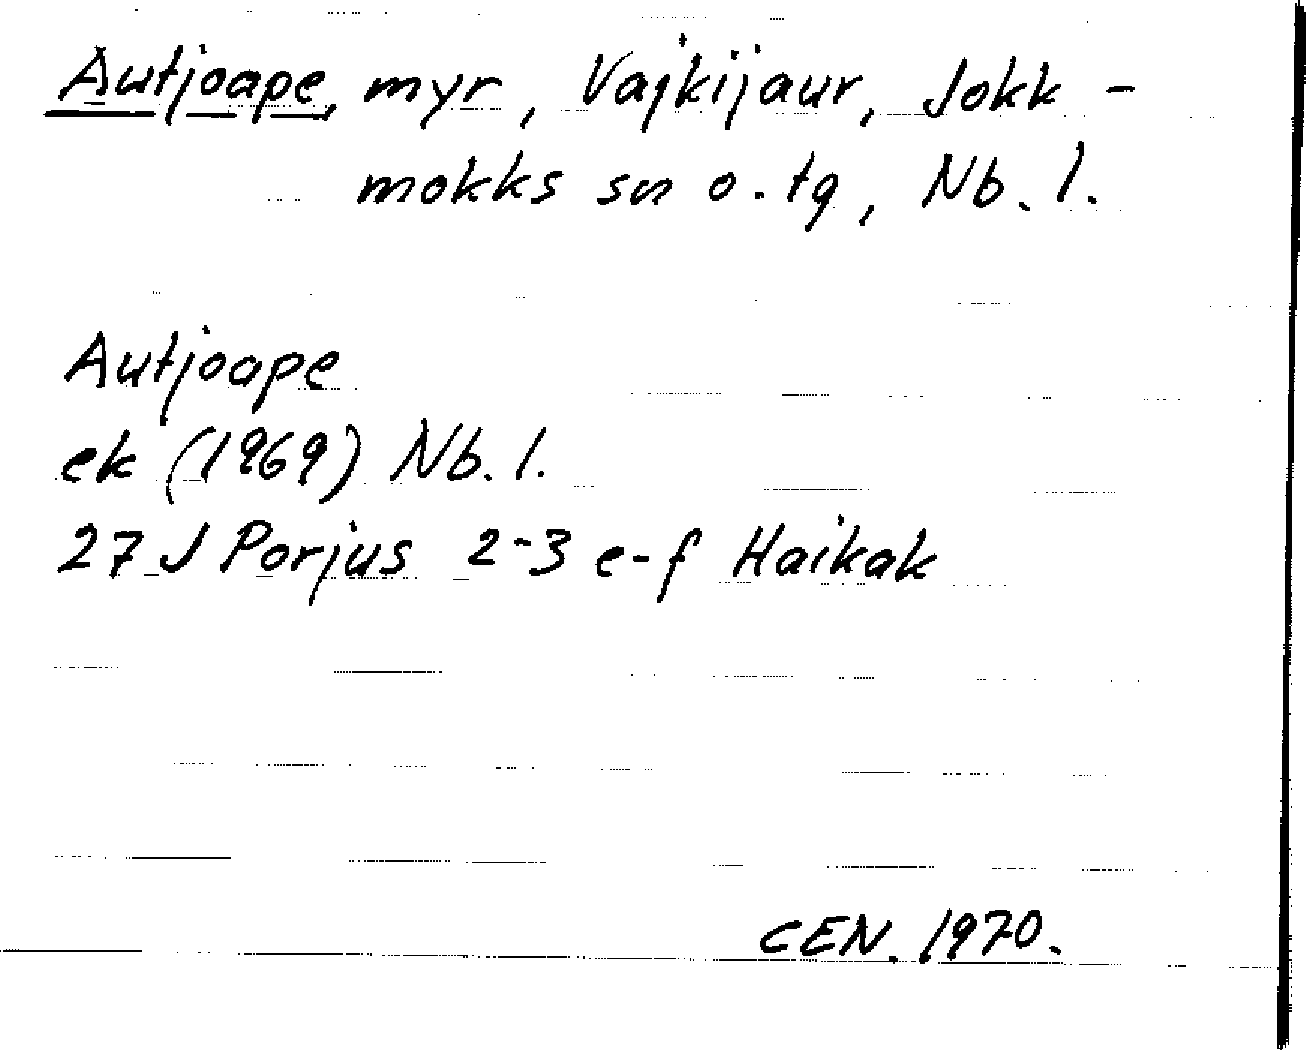 Autjoape, myr, Vajkijaur, Jokk-
mokks sn o. tg, Nb. l.
Autjoape
ek (1969) Nb. l.
27 J Porjus 2-3 e-f Haikak
CEN. 1970.